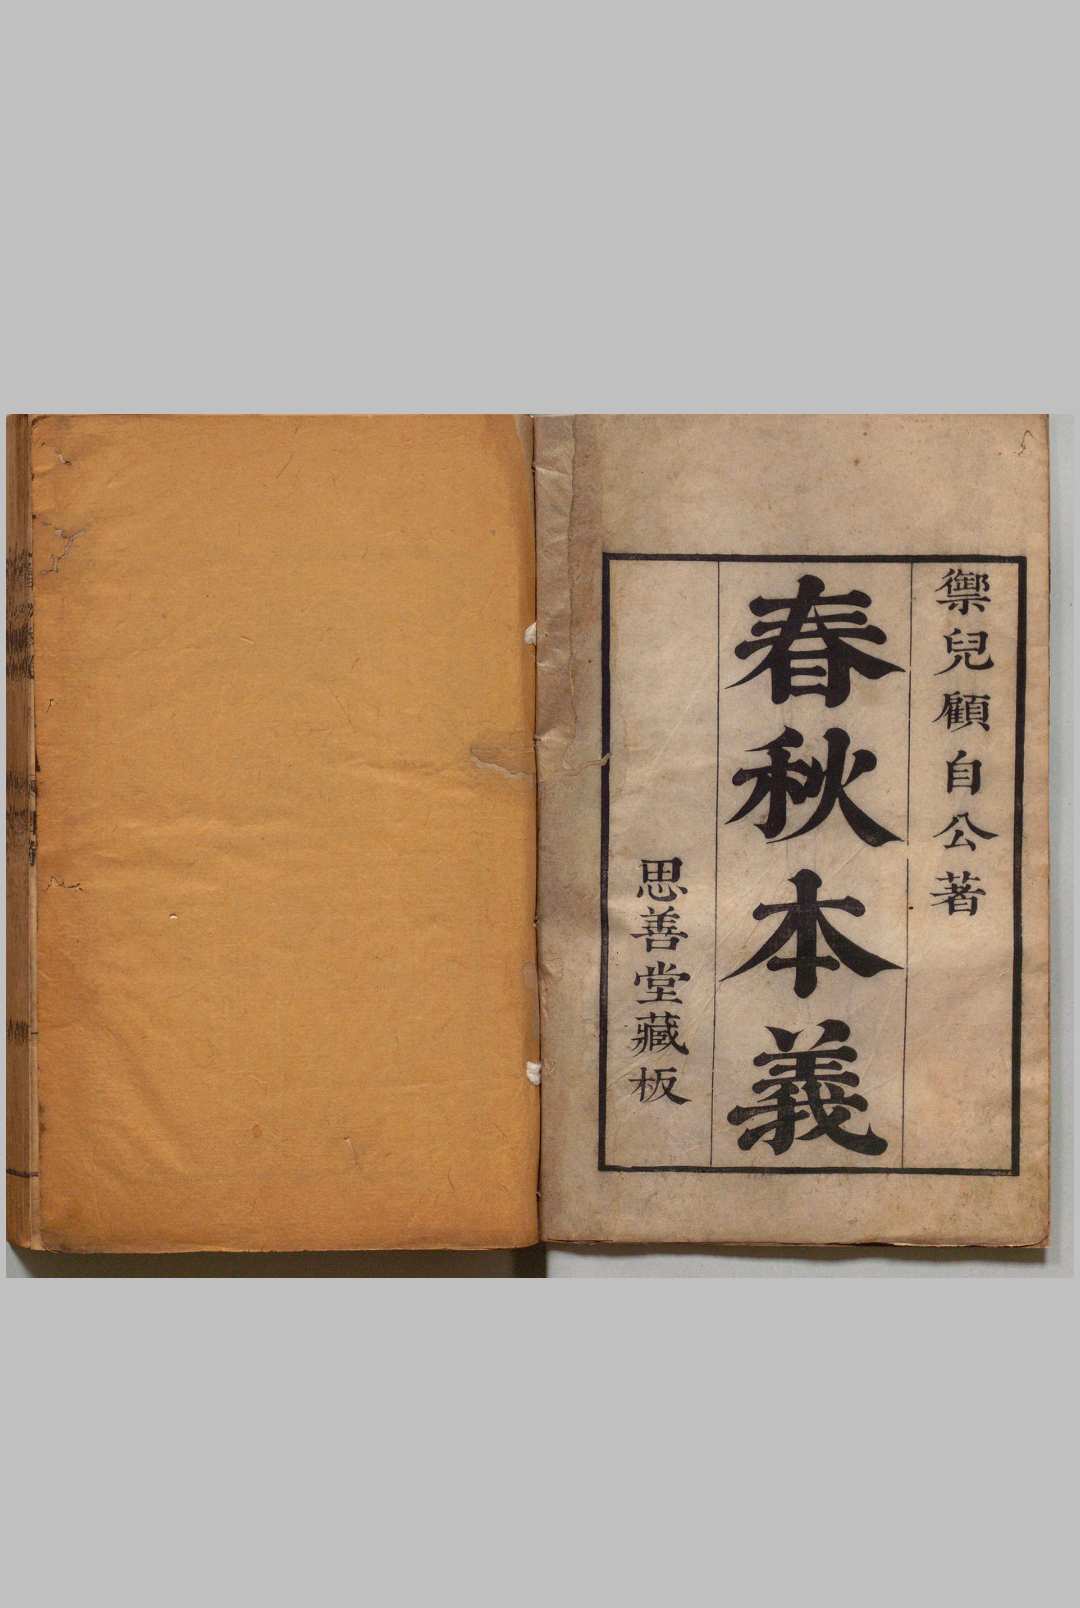 禦兒顧自公著
春秋本義
思善堂藏板